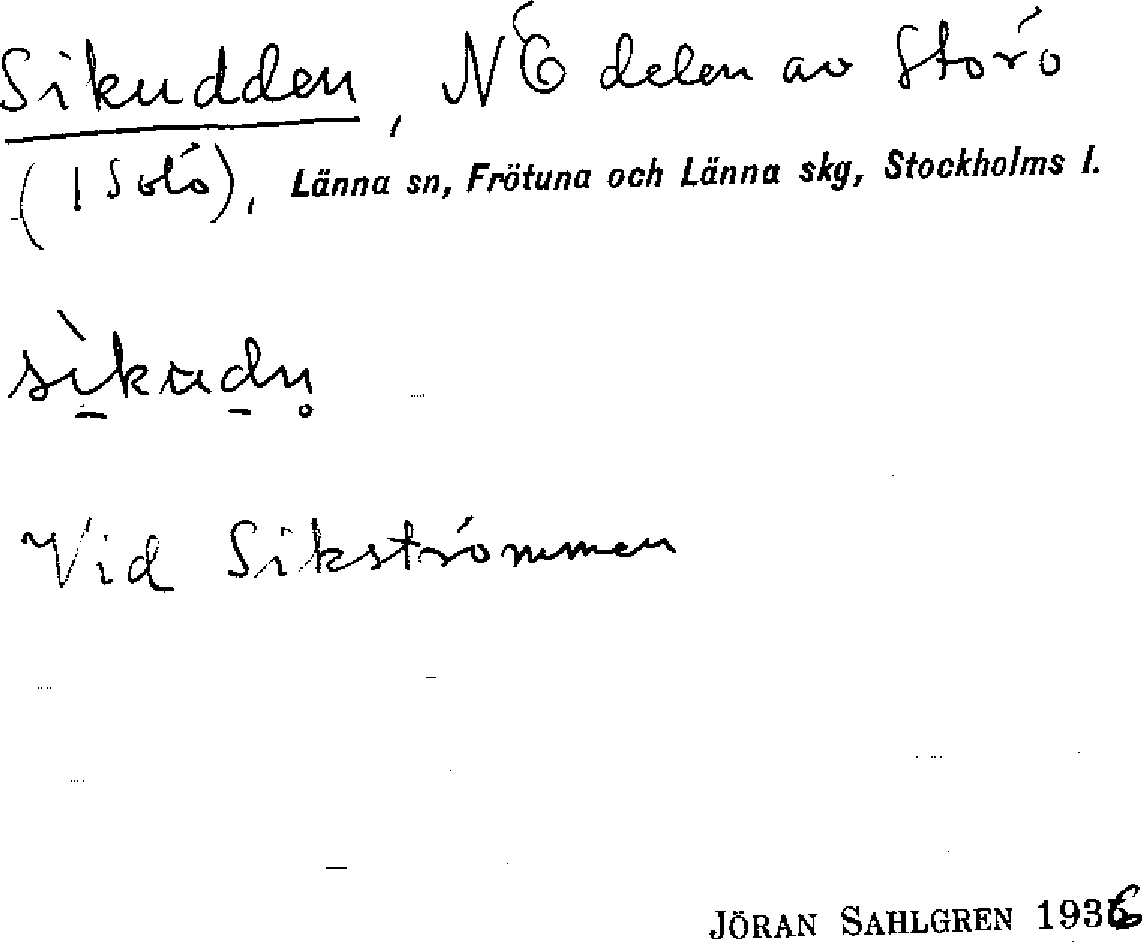 Sikudden, NÖ delen av Storö
(I Solö), Länna sn, Frötuna och Länna skg, Stockholms l.
sìkudn̥
Vid Sikströmmen
JÖRAN SAHLGREN 1936